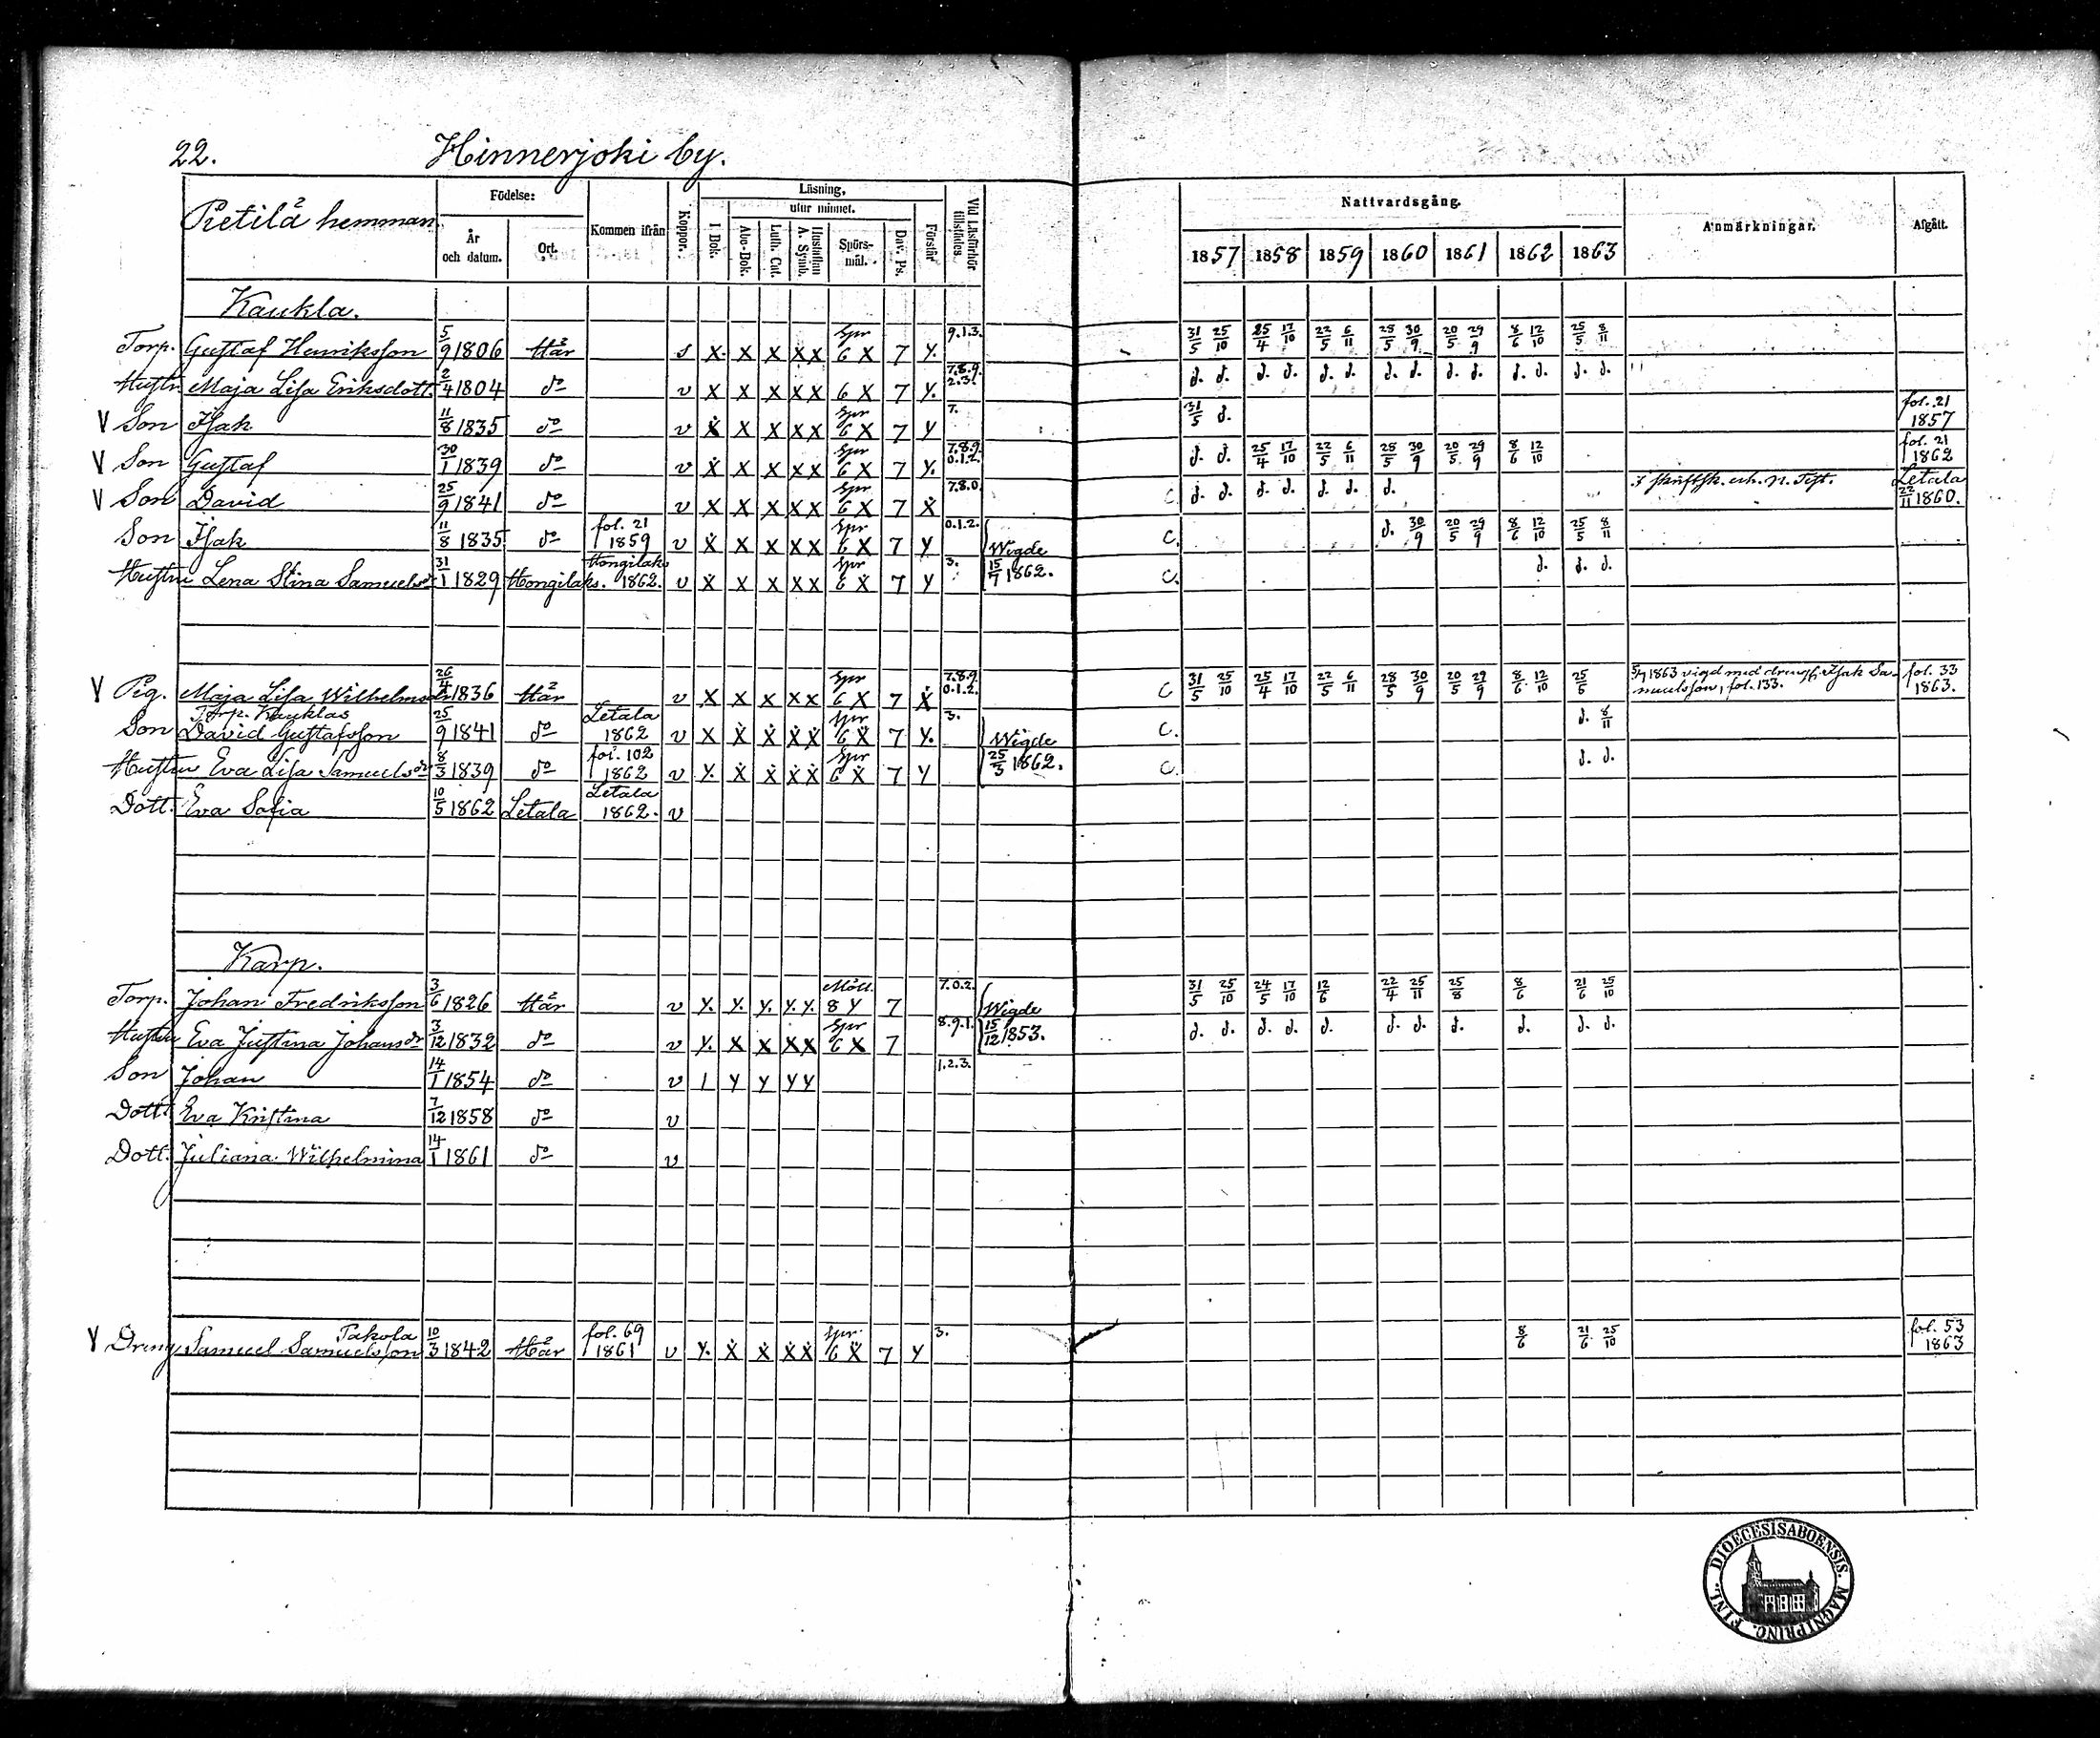 22. Hinnerjoki by.
Pietilä hemman. Födelse: År och datum. Ort. Kommen ifrån Koppor. Läsning, I Bok. utur minnet. Abc-Bok. Luth. Cat. Hustaflan A. Symb. Spörs-mål. Dav. Ps. Förstår Vid Läsförhör tillstädes Nattvardsgång. 1857 1858 1859 1860 1861 1862 1863 Anmärkningar. Afgått.
Kaukla.
Torp. Gustaf Henriksson 5/9 1806 Här s X. X X X X Spr 6 X 7 Y. 9.1.3. 31/5 25/10 25/4 17/10 22/5 6/11 25/5 30/9 20/5 29/9 8/6 12/10 25/5 8/11
Hustru Maja Lisa Eriksdott. 2/4 1804 do v X X X X X 6 X 7 Y. 7.8.9. 2.3. d. d. d. d. d. d. d. d. d. d. d. d. d. d.
V Son Isak 11/8 1835 do v X X X X X Spr 6 X 7 Y 7. 31/5 d. fol. 21 1857
V Son Gustaf 30/1 1839 do v X X X X X Spr 6 X 7 Y. 7.8.9. 0.1.2. d. d. 25/4 17/10 22/5 6/11 25/5 30/9 20/5 29/9 8/6 12/10 fol. 21 1862
V Son David 25/9 1841 do v X X X X X Spr 6 X 7 X 7.8.0. C. d. d. d. d. d. d. d. Letala 22/11 1860.
Son Isak 11/8 1835 do fol. 21 1859 v X X X X X Spr 6 X 7 Y 0.1.2. Wigde C. d. 30/9 20/5 29/9 8/6 12/10 25/5 8/11
Hustru Lena Stina Samuelsdr 31/1 1829 Hongilaks. Hongilaks 1862. v X X X X X Spr 6 X 7 Y 3. 15/7 1862. C. d. d. d.
V Pig. Maja Lisa Wilhelmsdr 26/4 1836 Här v X X X X X Spr 6 X 7 X 7.8.9. 0.1.2. C 31/5 25/10 25/4 17/10 22/5 6/11 28/5 30/9 20/5 29/9 8/6 12/10 25/5 5/7 1863 vigd med dreng Isak Sa-muelsson, fol. 133. fol. 33 1863.
Torp. Kauklas
Son David Gustafsson 25/9 1841 do Letala 1862 v X X X X X Spr 6 X 7 Y. 3. Wigde C. d. 8/11
Hustru Eva Lisa Samuelsdr 8/3 1839 do fol. 102 1862 v Y. X X X X Spr 6 X 7 Y 25/3 1862. C. d. d.
Dott. Eva Sofia 10/5 1862 Letala Letala 1862. v
Karp.
Torp. Johan Fredriksson 3/6 1826 Här v Y. Y. Y. Y. Y. Mött. 8 Y 7 7.0.2. Wigde 31/5 25/10 24/5 17/10 12/6 22/4 25/11 25/8 8/6 21/6 25/10
Hustru Eva Justina Johansdr 3/12 1832 do v Y. X X X X Spr 6 X 7 8.9.1. 15/12 1853. d. d. d. d. d. d. d. d. d. d. d.
Son Johan 14/1 1854 do v 1 Y Y Y Y 1.2.3.
Dott. Eva Kristina 7/12 1858 do v
Dott. Juliana Wilhelmina 14/1 1861 do v
Takola
V Dreng Samuel Samuelsson 10/3 1842 Här fol. 69 1861 v Y. X X X X Spr. 6 X 7 Y 3. 8/6 21/6 25/10 fol. 53 1863
DIOECESIS ABOENSIS. MAGNI PRINC. FINL.